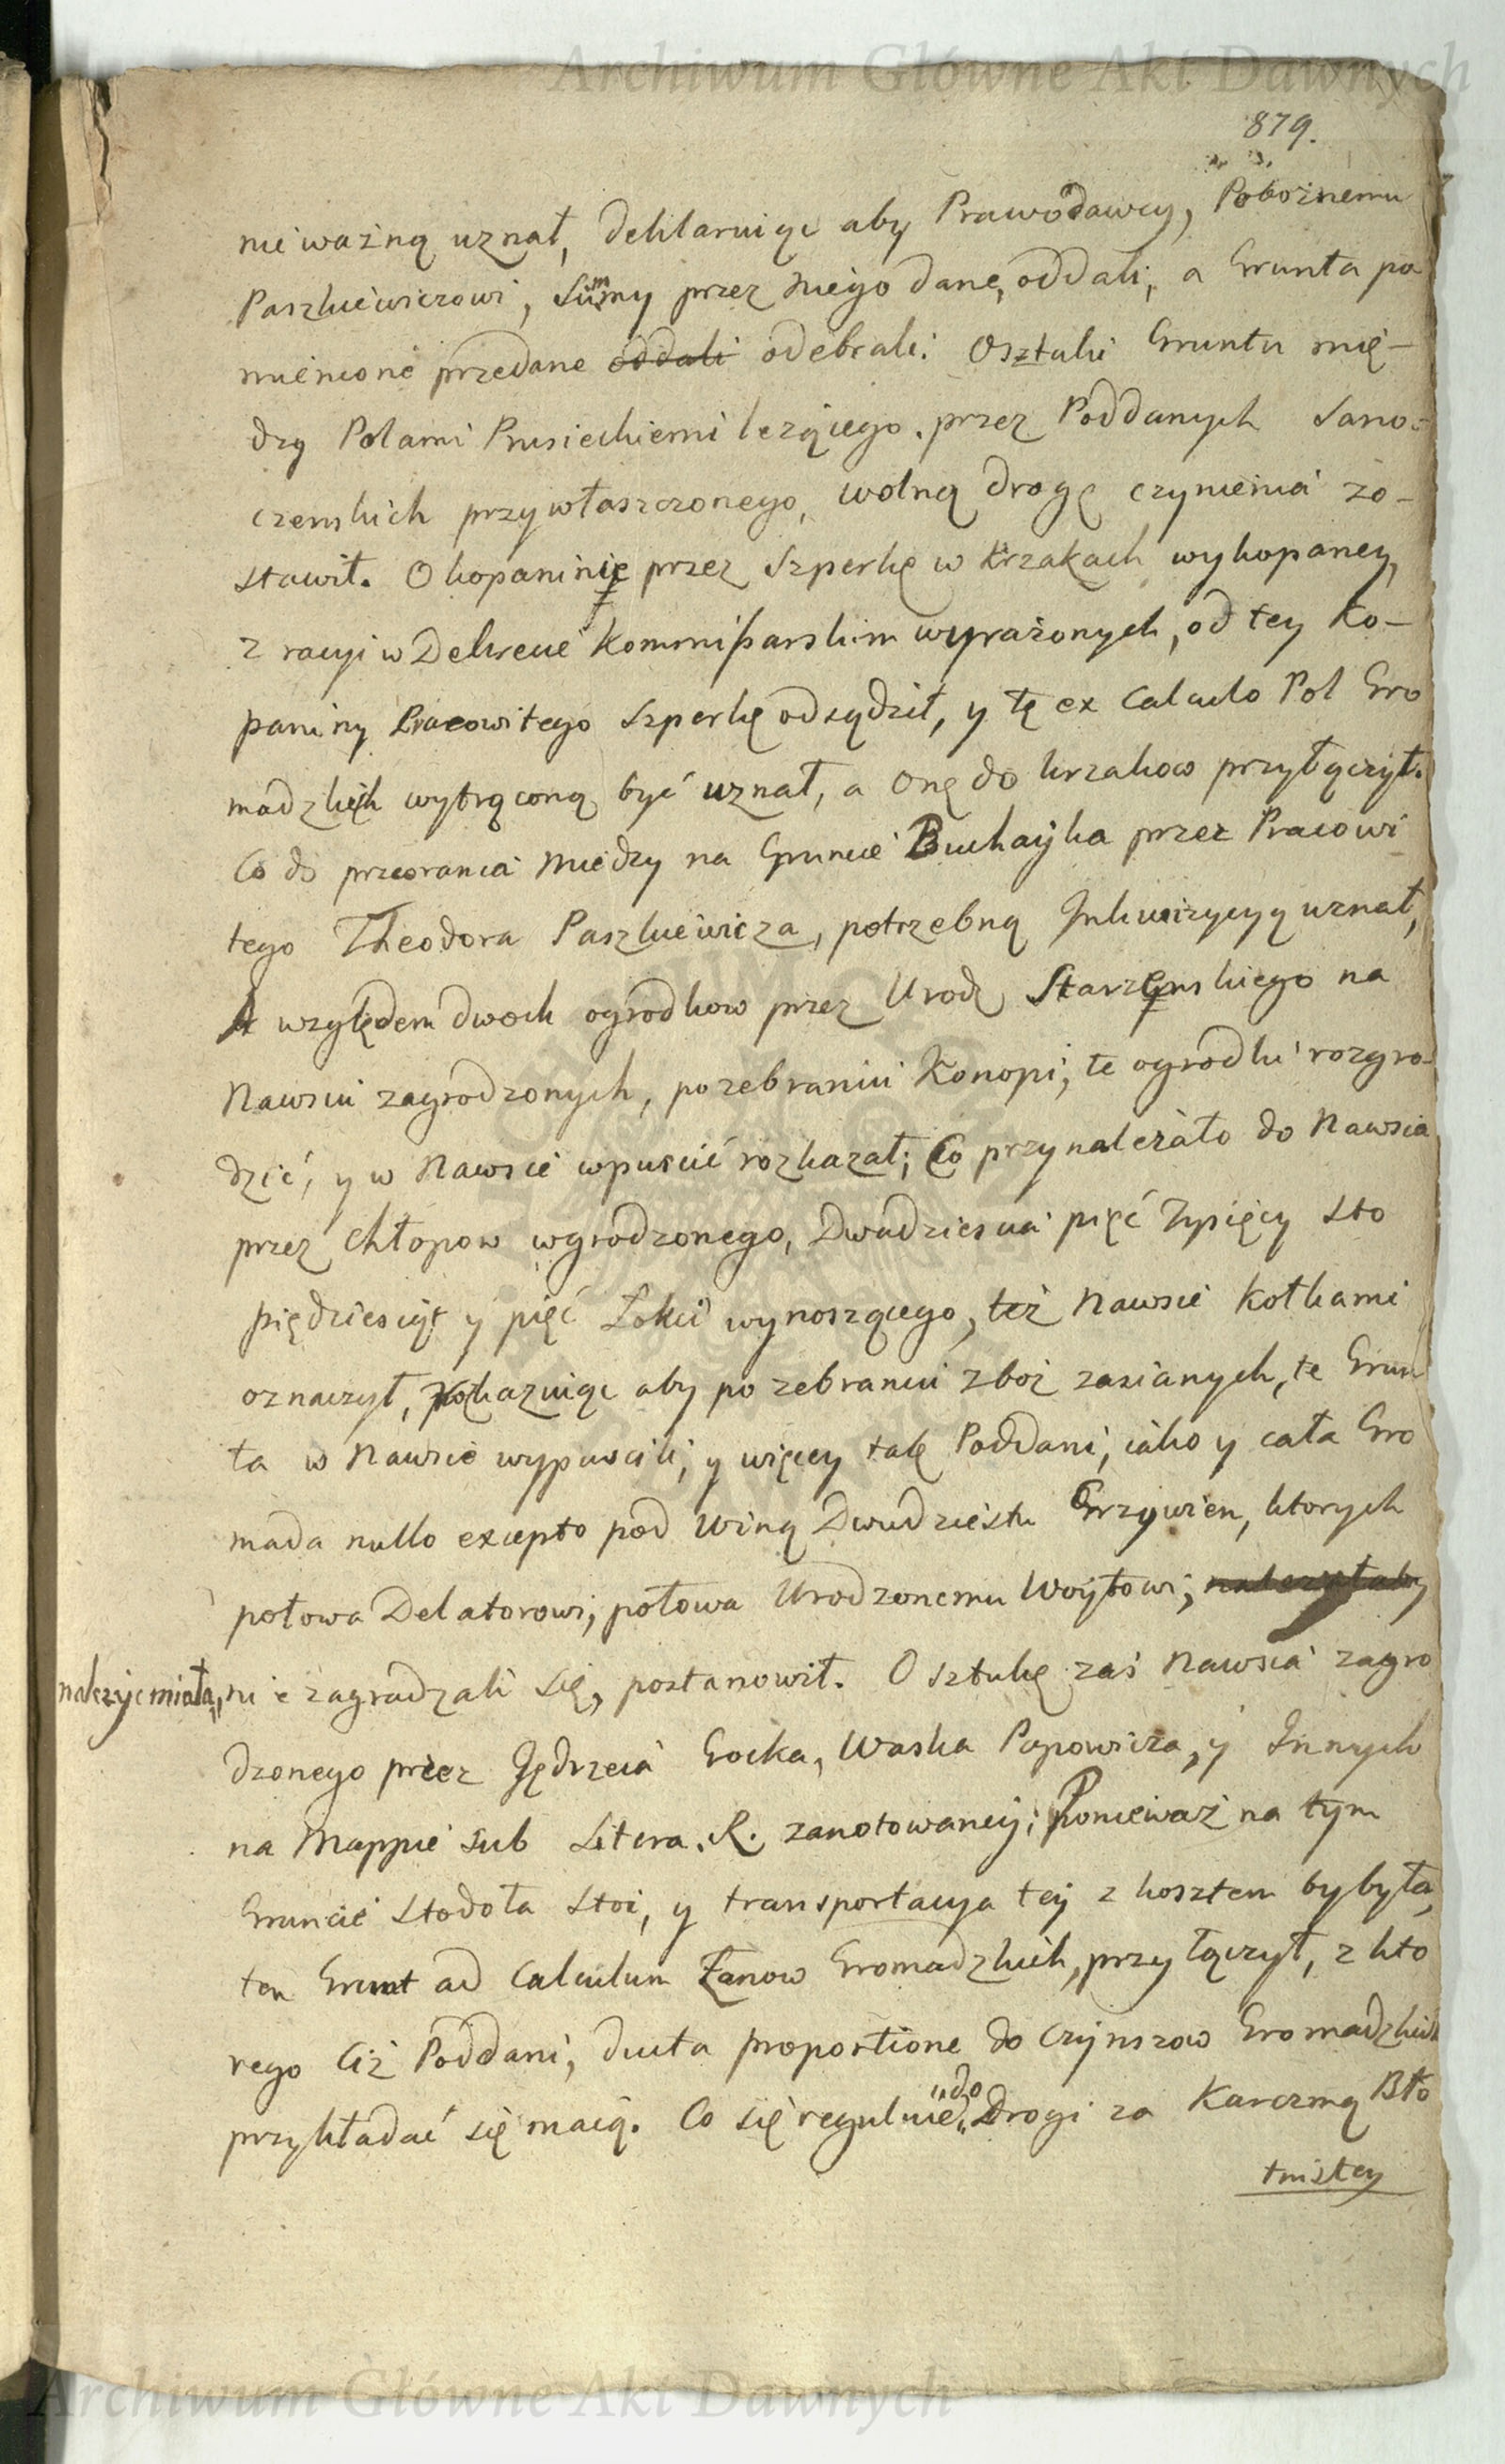 Archiwum Główne Akt Dawnych
879.
nie ważną uznał, deklaruiąc aby Prawodawcy, Pobożnemu
Paszkiewiczowi, Summy przez niego dane, oddali, a Grunta po
mienione przedane oddali odebrali. O sztuki Gruntu mię-
dzy Polami Prusieckiemi leżącego, przez Poddanych Sano-
czenskich przywłaszczonego, wolną drogę czynienia zo-
stawił. O kopaninię przez Szperkę w krzakach wykopaney,
z racyi w Dekrecie Kommissarskim wyrażonych, od tey Ko-
paniny Pracowitego Szperkę odsądził, y tę ex Calculo Pol Gro
madzkich wytrąconą być uznał, a onę do krzakow przyłączył.
Co do przeorania Miedzy na Gruncie Buchayka przez Pracowi
tego Theodora Paszkiewicza, potrzebną Inkwizycyą uznał,
A względem dwoch ogrodkow przez Urodz Starzęnskiego na
Nawsiu zagrodzonych, po zebraniu Konopi, te ogrodki rozgro-
dzić, y w Nawsie wpuscić rozkazał; Co przynależało do Nawsia
przez chłopow wgrodzonego, Dwadziescia pięć Tysięcy sto
piędziesiąt y pięć Łokci wynoszącego, też Nawsie Kołkami
oznaczył, rozkazuiąc aby po zebraniu zboż zasianych, te Grun
ta w Nawsie wypuscili, y więcey tak Poddani, iako y cała Gro
mada nullo excepto pod winą Dwudziestu Grzywien, ktorych
połowa Delatorowi, połowa Urodzonemu Woytowi, należałaby
należyc miała, nie zagradzali się, postanowił. O sztukę zaś Nawsia zagro
dzonego przez Jędrzeia Gocka, Waska Popowicza, y Innych
na Mappie sub Litera. R. zanotowaney; Ponieważ na tym
Gruncie stodoła stoi, y transportacya tey z kosztem byby była,
ten Grunt ad Calculum Łanow Gromadzkich, przyłączył, z kto
rego ciż Poddani, ducta proportione do Czynszow Gromadzkich
przykładać się maią. Co się reguluie do Drogi za Karczmą Bło
tnistey
Archiwum Główne Akt Dawnych